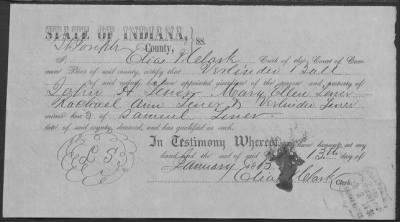 STATE OF INDIANA,
St Joseph County, } SS.
I, Elias V Clark Clerk of the Court of Com-
mon Pleas of said county, certify that Verlinda Ball
was duly appointed guardian of the persons and property of
John H Lener, Mary Ellen Lener
Rachael Ann Lener & Verlinda Lener
minor heirs of Samuel Lener
late of said county, deceased, and has qualified as such.
In Testimony Whereof, I have hereunto set my
hand and the seal of said court this 13th day of
January 1865
Elias V Clark Clerk
L S